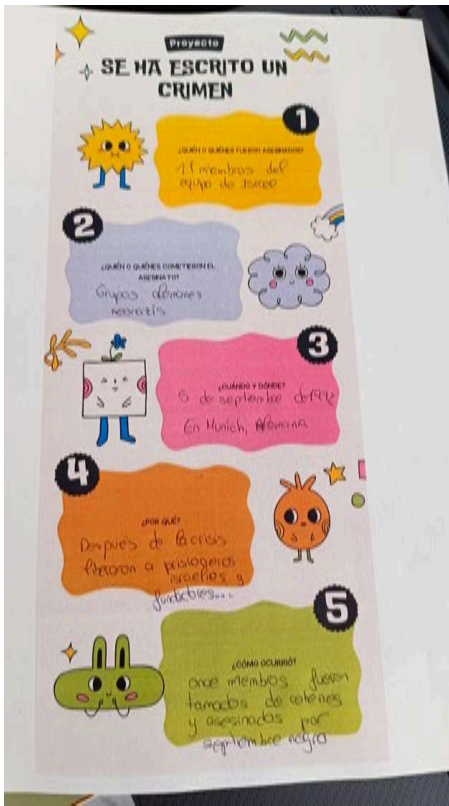 Proyecto
SE HA ESCRITO UN
CRIMEN
1
¿QUIÉN O QUIÉNES FUERON ASESINADOS?
11 miembros del
equipo de Israel
2
¿QUIÉN O QUIÉNES COMETIERON EL
ASESINATO?
Grupos alemanes
neonazis
3
¿CUÁNDO Y DÓNDE?
5 de septiembre de 1972
En Munich, Alemania
4
¿POR QUÉ?
Después de la crisis
liberaron a
israelies y
5
¿CÓMO OCURRIÓ?
once miembros fueron
tomados de rehenes
y asesinados por
septiembre negro